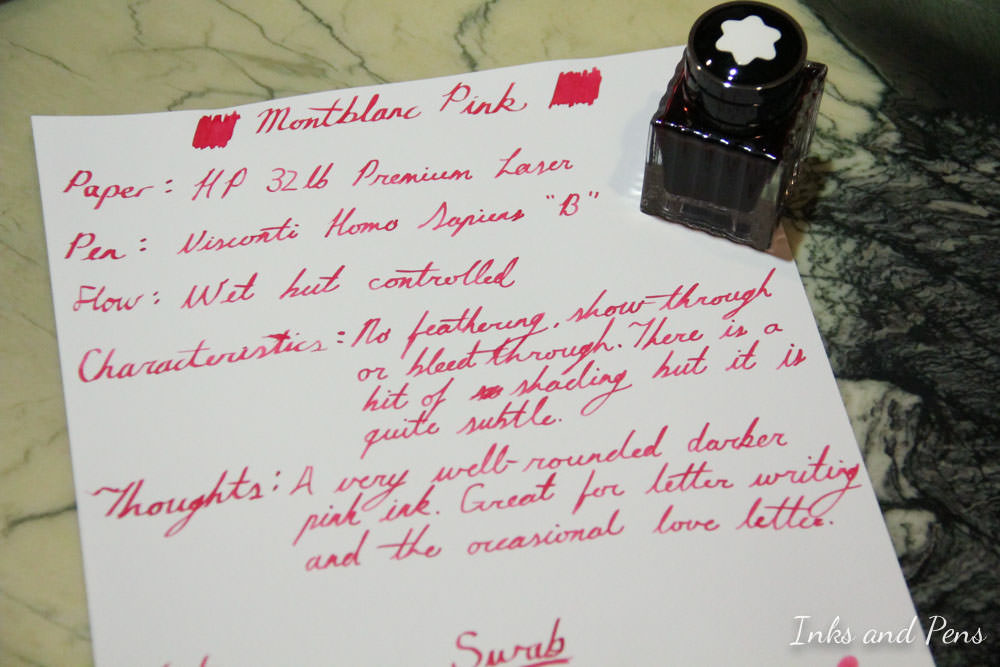 Montblanc Pink
Paper: HP 32lb Premium Laser
Pen: Visconti Homo Sapiens "B"
Flow: Wet but controlled
Characteristics: No feathering, show-through
or bleed through. There is a
bit of shading but it is
quite subtle.
Thoughts: A very well-rounded darker
pink ink. Great for letter writing
and the occasional love letter.
Swab
Inks and Pens